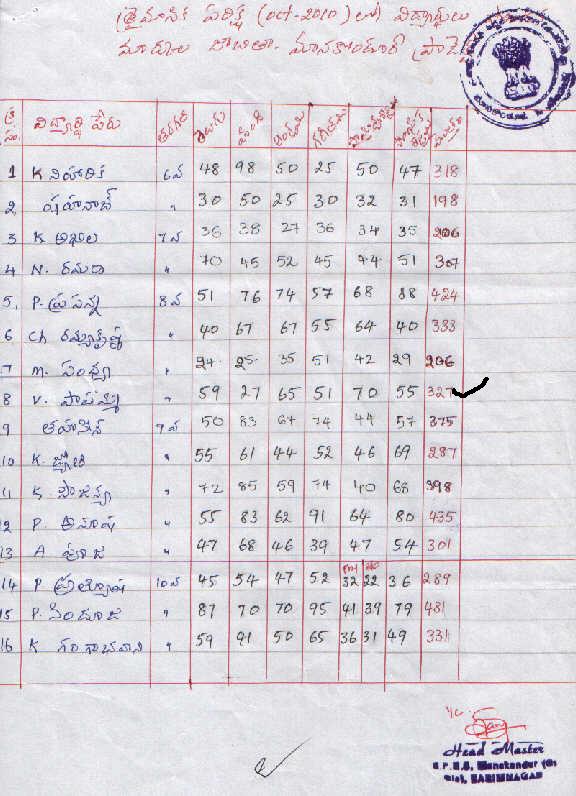 త్రైమాసిక పరీక్ష (oct-2010) లో విద్యార్థులు
మార్కుల జాబితా. మానకొండూర్
క్ర సం. విద్యార్థి పేరు తరగతి తెలుగు హిందీ గణితము
1 K నిహారిక 6వ 48 98 50 25 50 47 318
2 షహనాజ్ " 30 50 25 30 32 31 198
3 K అఖిల 7వ 36 38 27 36 34 35 206
4 N. రమాదే " 70 45 52 45 44 51 307
5. P. ప్రసన్న 8వ 51 76 74 57 68 88 424
6 Ch " 40 67 67 55 64 40 333
7 M. సంధ్య " 24 25 35 51 42 29 206
8 V. పావని " 59 27 65 51 70 55 327
9 తహసీన్ 9వ 50 83 67 74 44 57 375
10 K. జ్యోతి " 55 61 44 52 46 69 287
11 K. సౌజన్య " 72 85 59 74 40 68 398
12 P. అనూష " 55 83 62 91 64 80 435
13 A పూజ " 47 68 46 39 47 54 301
14 P ప్రత్యూష 10వ 45 54 47 52 32 22 36 289
15 P. సింధూజ " 87 70 70 95 41 39 79 481
16 K గంగాభవాని " 59 91 50 65 36 31 49 331
Head Master
Manakondur
KARIMNAGAR